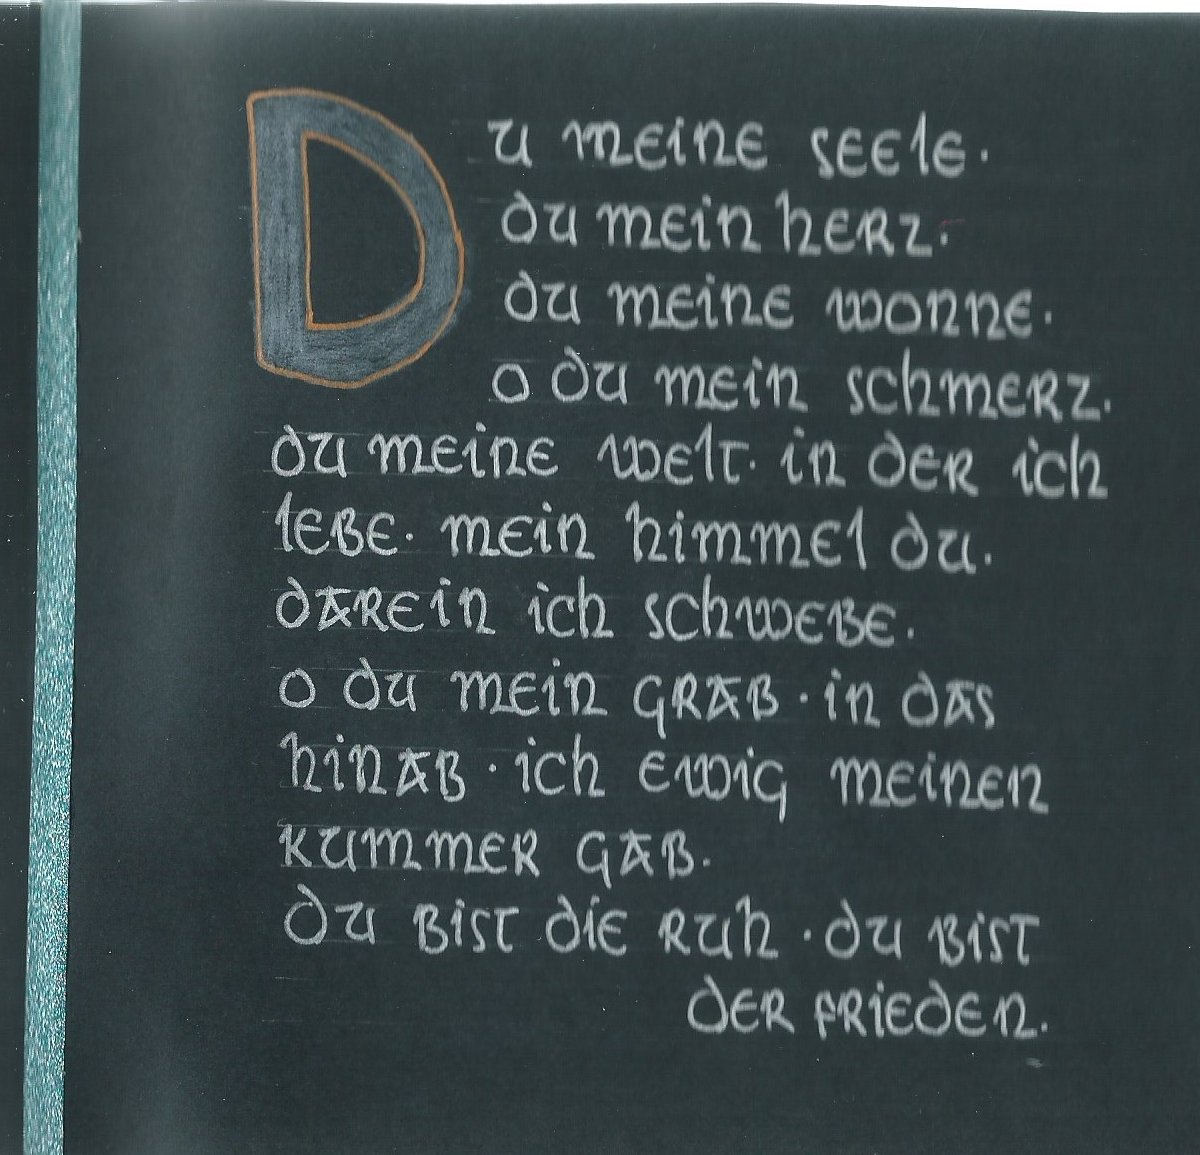 Du meine seele·
du mein herz·
du meine wonne·
o du mein schmerz·
du meine welt· in der ich
lebe· mein himmel du·
darein ich schwebe·
o du mein grab · in das
hinab · ich ewig meinen
kummer gab·
du bist die ruh · du bist
der frieden·